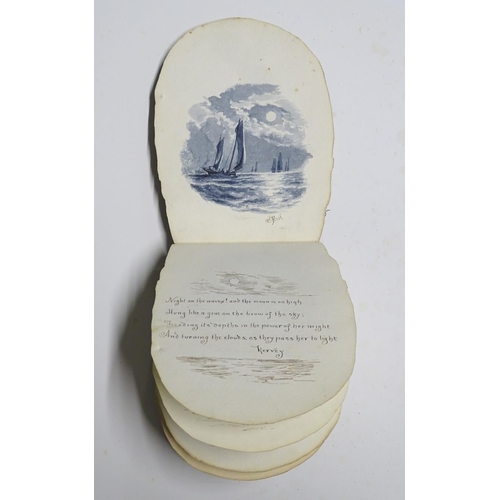 Night on the waves! and the moon is on high
Hung like a gem on the brow of the sky;
Treading its depths in the power of her might
And turning the clouds, as they pass her to light
Hervey